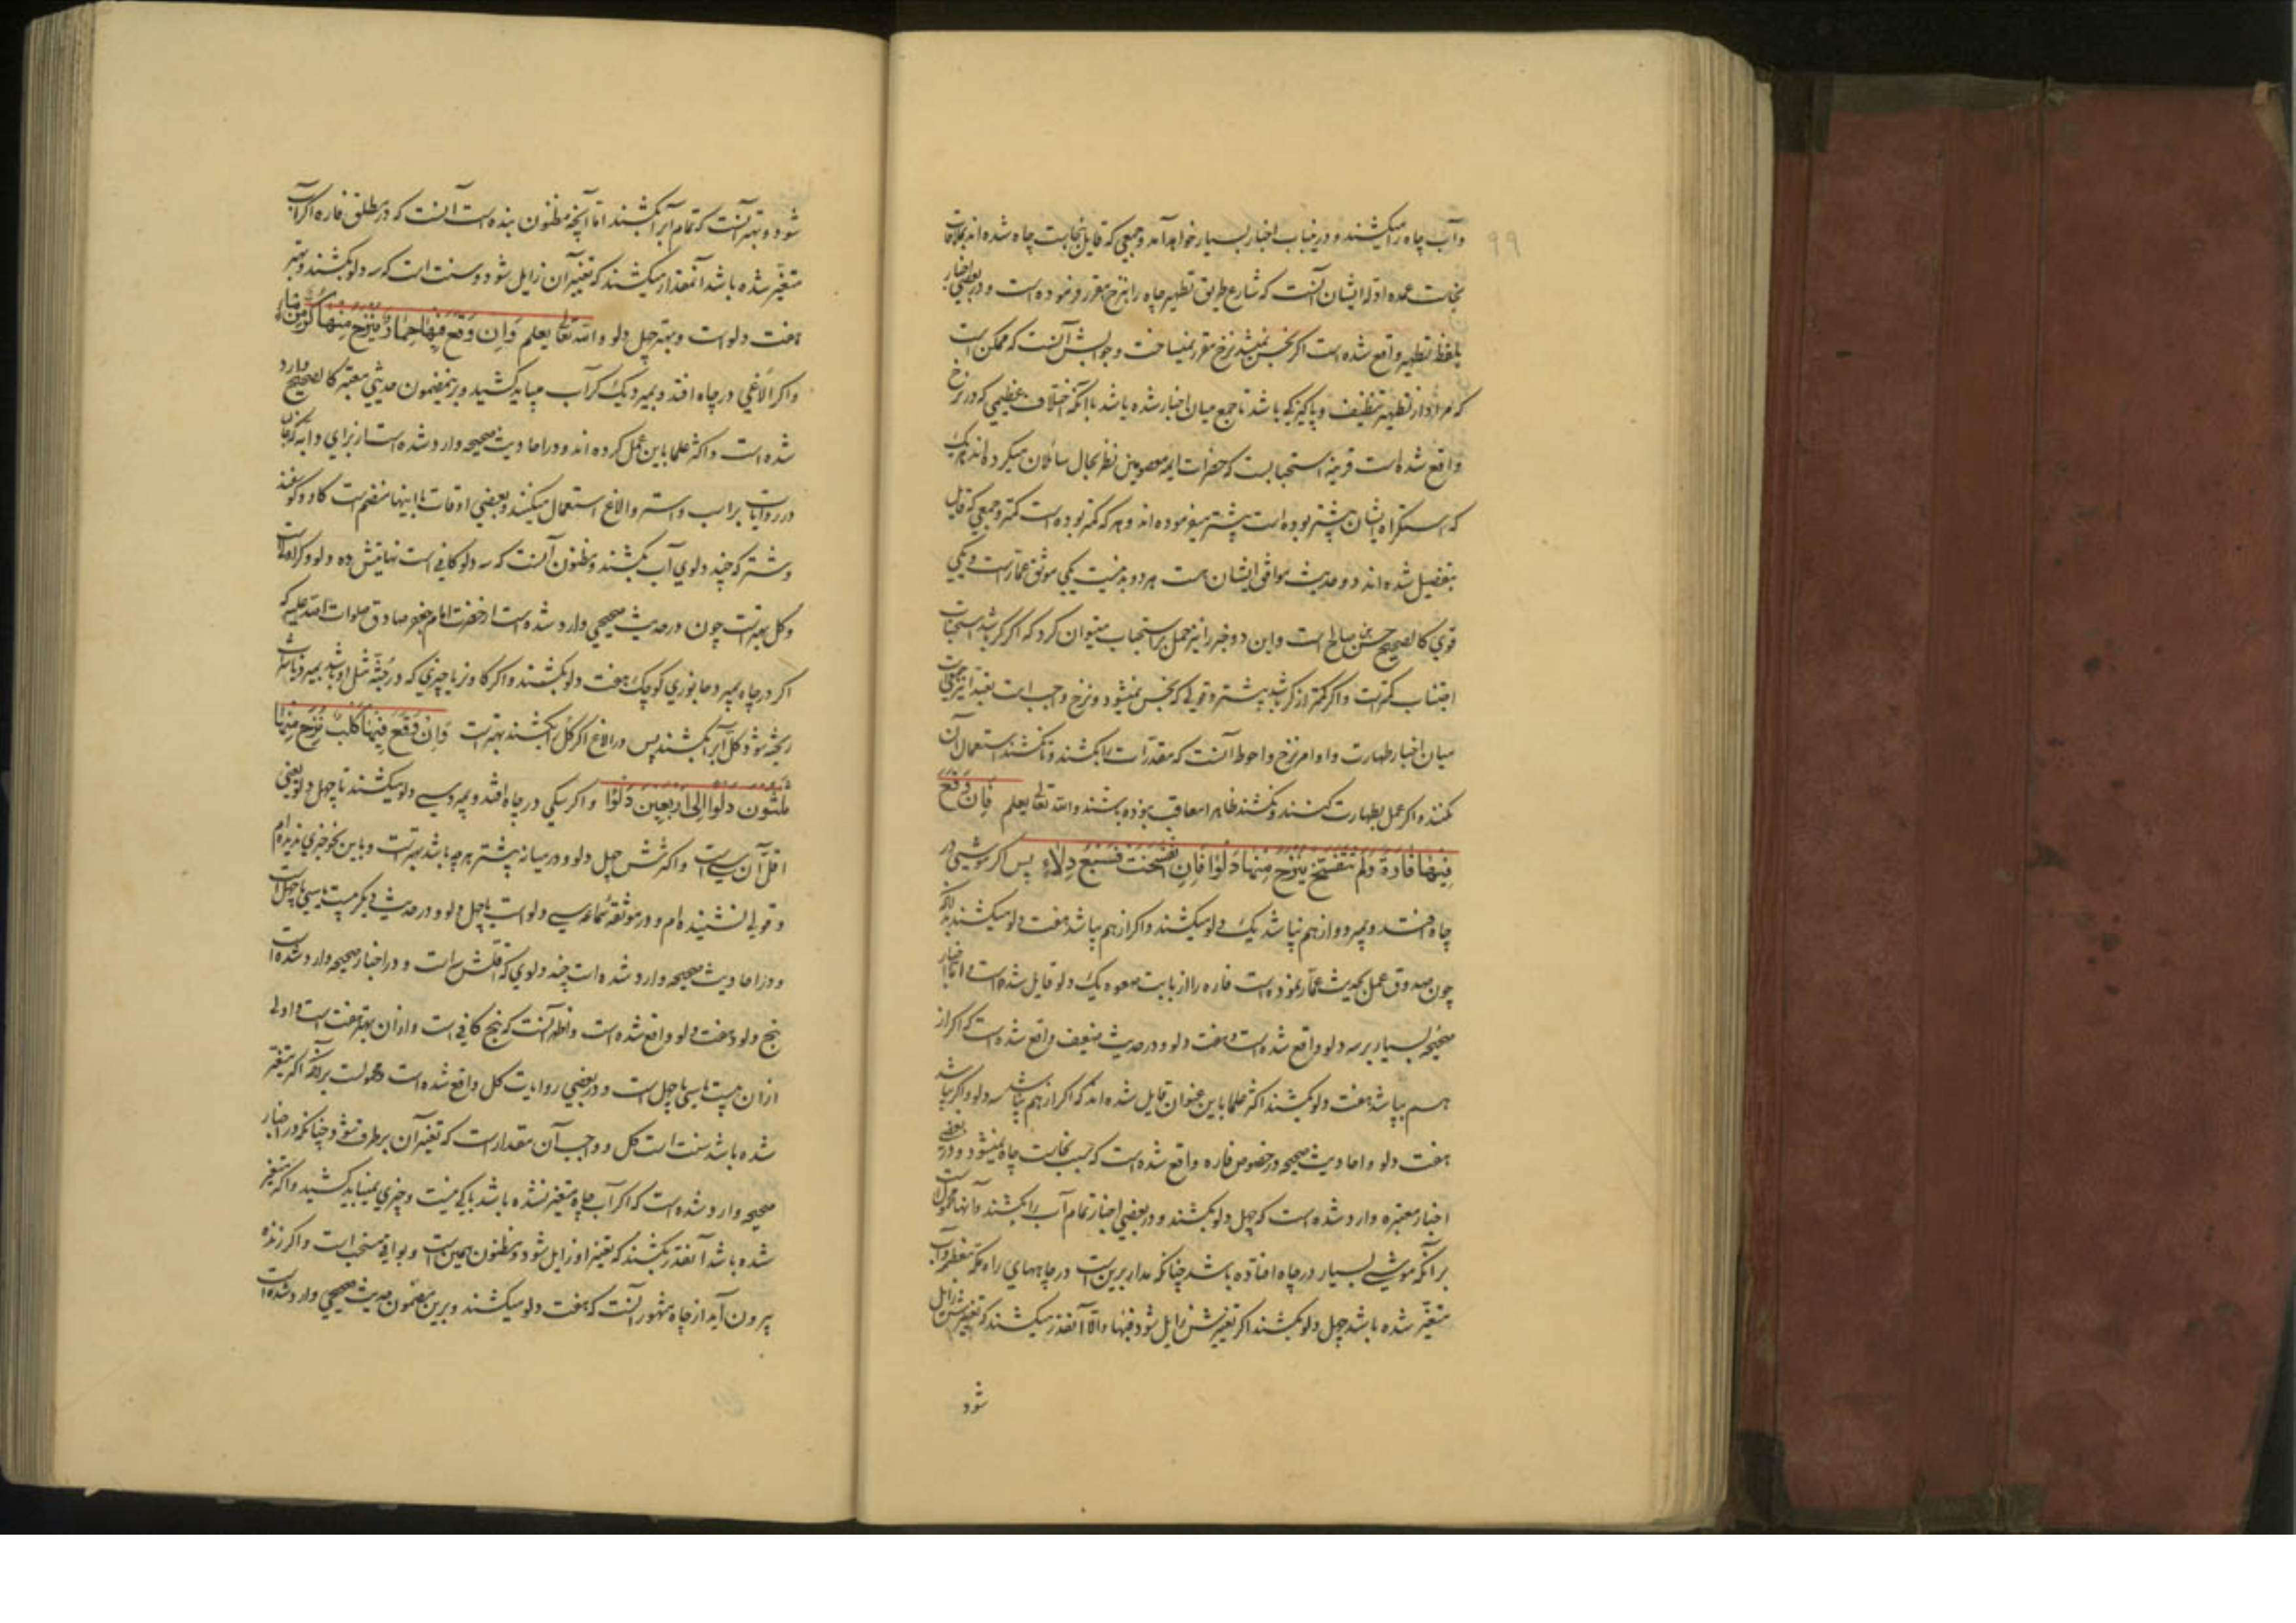 ۹۹
و آب چاه را میکشند و درینباب اخبار بسیار خواهد آمد و جمعی که قایل بنجاست چاه شده اند بملاقات
نجاست عمده ادله ایشان آنست که شارع طریق تطهیر چاه را بنزح مقرر فرموده است و در بعضی اخبار
بلفظ تطهیر واقع شده است اگر نجس نمیشد نزح مقرر نمیساخت و جوابش آنست که ممکن است
که مراد از تطهیر تنظیف و پاکیزکی باشد تا جمع میان اخبار شده باشد با آنکه اختلاف عظیمی که در نزح
واقع شده است قرینه استحبابست که حضرات ایمه معصومین نظر بحال سائلان میکرده اند هر یک
که استکراه ایشان بیشتر بوده است بیشتر میفرموده اند و هر که کمتر بوده است کمتر و جمعی که قایل
بتفصیل شده اند دو حدیث موافق ایشان هست هر دو بد نیست یکی موثق عمار است و یکی
قوی کالصحیح حسن بن صالح است و این دو خبر را نیز حمل بر استحباب میتوان کرد که اگر کر باشد استحباب
اجتناب کمتر است و اگر کمتر از کر باشد بیشتر و قولی که نجس نمیشود و نزح واجب است تعبدا نیز
میان اخبار طهارت و اوامر نزح و احوط آنست که مقدرات را بکشند و تا نکشند استعمال آن
نکنند و اگر عمل بطهارت کنند و نکشند ظاهرا معاقب نبوده باشند والله تعالی یعلم فَاِن وَقَعَ
فِیهَا فَارَةٌ وَلَم تَتَفَسَّخ یُنزَحُ مِنهَا دَلوًا فَاِن تَفَسَّخَت فَسَبعُ دِلَاءٍ پس اگر موشی در
چاه افتد و بمیرد و از هم نپاشد یک دلو میکشند و اگر از هم بپاشد هفت دلو میکشند بدانکه
چون صدوق عمل بحدیث عمار نموده است فاره را از بابت صعوه یک دلو قایل شده است و اما اخبار
صحیحه بسیار بر سه دلو واقع شده است و هفت دلو و در حدیث ضعیف واقع شده است که اگر از
هم بپاشد هفت دلو بکشند اکثر علما باین عنوان قایل شده اند که اگر از هم نپاشد سه دلو و اگر بپاشد
هفت دلو و احادیث صحیحه در خصوص فاره واقع شده است که سبب نجاست چاه نمیشود و در بعضی
اخبار معتبره وارد شده است که چهل دلو بکشند و در بعضی اخبار تمام آب را بکشند و آنها محمول است
بر آنکه موشی بسیار در چاه افتاده باشد چنانکه مدار برین است در چاههای راه مکه معظمه و آب
متغیر شده باشد چهل دلو بکشند اگر تغیرش زایل شود فبها و الا آنقدر میکشند که تغیرش زایل
شود
شود و بهتر آنست که تمام آب را بکشند اما آنچه مظنون بنده است آنست که در مطلق فاره اگر آب
متغیر شده باشد آنمقدار میکشند که تغییر آن زایل شود و سنت است که سه دلو بکشند و بهتر
هفت دلو است و بهتر چهل دلو والله تعالی یعلم وَاِن وَقَعَ فِیهَا حِمَارٌ یُنزَحُ مِنهَا کُرٌّ مِنَ المَاءِ
و اگر الاغی در چاه افتد و بمیرد یک کر آب میباید کشید و برینمضمون حدیثی معتبر کالصحیح وارد
شده است و اکثر علما باین عمل کرده اند و در احادیث صحیحه وارد شده است از برای دابه که آنرا
در روایات بر اسب و استر و الاغ استعمال میکنند و بعضی اوقات با اینها منضم است گاو و گوسفند
و شتر که چند دلوی آب بکشند و مظنون آنست که سه دلو کافی است نهایتش ده دلو و کر اولی است
و کل بهتر است چون در حدیث صحیحی وارد شده است از حضرت امام جعفر صادق صلوات الله علیه که
اگر در چاه بمیرد جانوری کوچک هفت دلو بکشند و اگر گاو نر یا چیزی که در جثه مثل او باشد بمیرد یا شراب
ریخته شود کل آب را بکشند پس در الاغ اگر کل را بکشند بهتر است وَاِن وَقَعَ فِیهَا کَلبٌ نُزِحَ مِنهَا
ثَلٰثُونَ دَلوًا اِلٰی اَربَعِینَ دَلوًا و اگر سگی در چاه افتد و بمیرد سی دلو میکشند تا چهل دلو یعنی
اقل آن سی است و اکثرش چهل دلو و در میانه بیشتر هر چه باشد بهتر است و باین نحو خبری ندیده ام
و قولی نشنیده ام و در موثقه سماعه سی دلو است یا چهل دلو و در حدیث دیگر بیست یا سی یا چهل است
و در احادیث صحیحه وارد شده است چند دلوی که اقلش سه است و در اخبار صحیحه وارد شده است
پنج دلو و هفت دلو واقع شده است و اظهر آنست که پنج کافی است و از آن بهتر هفت است و اولی
از آن بیست یا سی یا چهل است و در بعضی روایات کل واقع شده است و محمولست بر آنکه اگر متغیر
شده باشد سنت است کل و واجب آن مقدار است که تغیر آن بر طرف شود چنانکه در اخبار
صحیحه وارد شده است که اگر آب چاه متغیر نشده باشد باکی نیست و چیزی نمیباید کشید و اگر متغیر
شده باشد آنقدر بکشند که تغیر او زایل شود و مظنون همین است و بواقی مستحب است و اگر زنده
بیرون آید از چاه مشهور آنست که هفت دلو میکشند و برین مضمون حدیث صحیحی وارد شده است